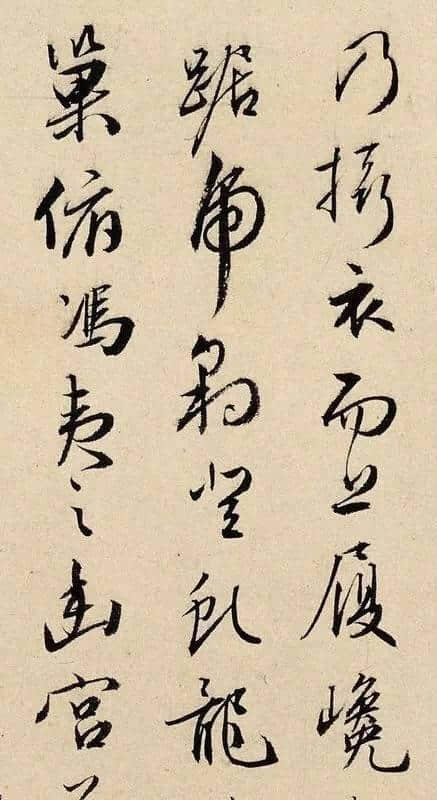 乃攝衣而上履巉
踞虎豹登虬龍
巢俯馮夷之幽宮